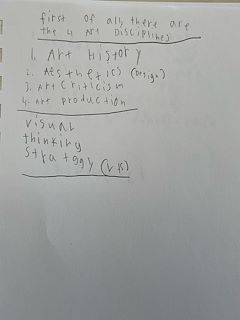 first of all, there are
the 4 Art Disciplines
1. Art History
2. Aesthetics (Design)
3. Art Criticism
4. Art production
Visual
thinking
Strategy (VTS)